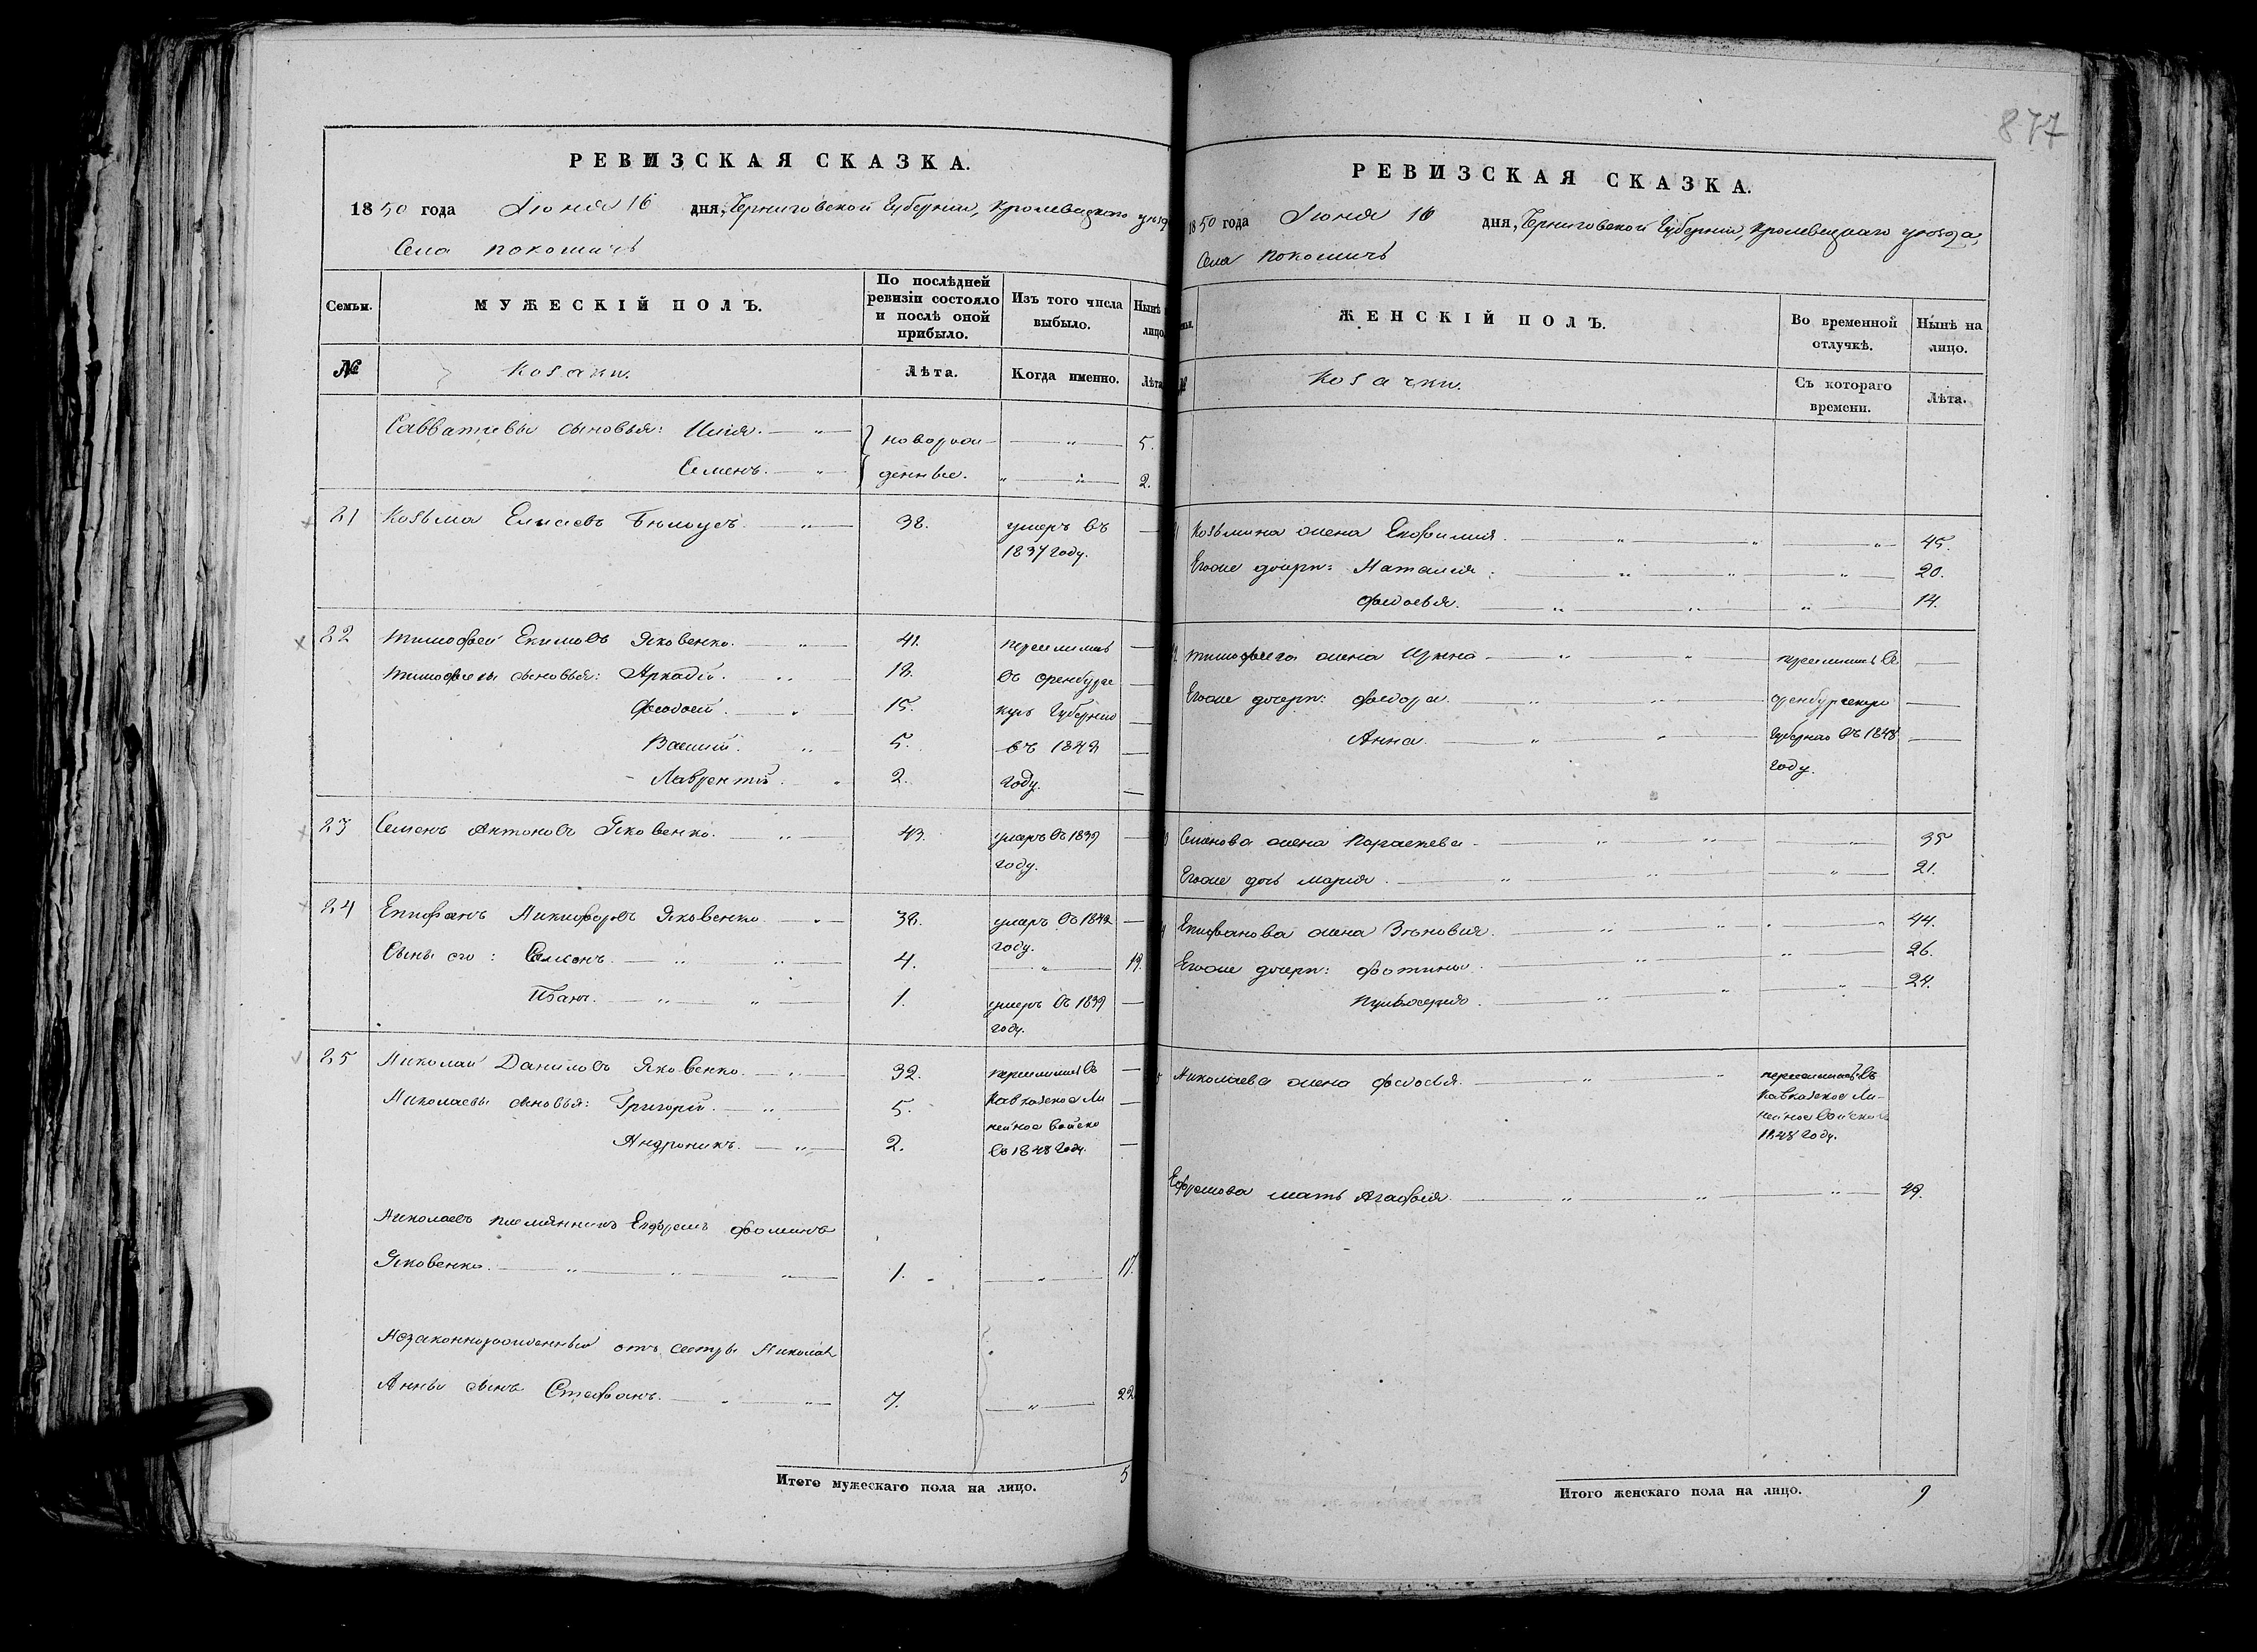 877
РЕВИЗСКАЯ СКАЗКА.
1850 года Июня 16 дня, Черниговской Губерніи, Кролевецкаго
Села Покошичь
Семьи. МУЖЕСКІЙ ПОЛЪ. По послѣдней ревизіи состояло и послѣ оной прибыло. Изъ того числа выбыло. Нынѣ на лицо.
№ Козаки. Лѣта. Когда именно. Лѣта
Савватіевы сыновья: Илія. новорож- 5.
Семенъ. денные. 2.
21 Козьма Елисеевъ Бѣлоусъ. 38. умеръ въ
1837 году.
22 Тимофей Екимовъ Яковенко. 41. переселились
Тимофеевы сыновья: Аркадій. 18. въ Оренбургс
Федосій. 15. кую Губернію
Василій. 5. въ 1842
Лаврентій. 2. году.
23 Семенъ Антоновъ Яковенко. 43. умеръ въ 1839
году.
24 Епифанъ Никифоровъ Яковенко. 38. умеръ въ 1842
году.
Сыны его: Семенъ. 4. 19.
Иванъ. 1. умеръ въ 1839
году.
25 Николай Даниловъ Яковенко. 32. переселился въ
Николаевы сыновья: Григорій. 5. Кавказское Ли
нейное войско
Андроникъ. 2. въ 1848 году.
Николаевъ племянникъ Ефремъ Фоминъ
Яковенко. 1. 17.
Незаконнорожденный отъ сестры Николая
Анны сынъ Стефанъ. 7. 22
Итого мужескаго пола на лицо. 5
РЕВИЗСКАЯ СКАЗКА.
1850 года Июня 16 дня, Черниговской Губерніи, Кролевецкаго уѣзда,
Села Покошичь
ЖЕНСКІЙ ПОЛЪ. Во временной отлучкѣ. Нынѣ на лицо.
№ Козачки. Съ котораго времени. Лѣта.
Козьмина жена Евфимия. 45.
Егоже дочери: Наталия. 20.
Федосья. 14.
Тимофеева жена Ирина переселились въ
Егоже дочери: Федора. Оренбургскую
Анна. Губернію въ 1848
году.
Семенова жена Параскева 35
Егоже дочь Мария. 21.
Епифанова жена Зѣновия. 44.
Егоже дочери: Фотинія. 26.
Пульхерия. 24.
Николаева жена Федосья. переселилась въ
Кавказское Ли-
нейное войско въ
1848 году.
Ефремова мать Агафия. 49.
Итого женскаго пола на лицо. 9